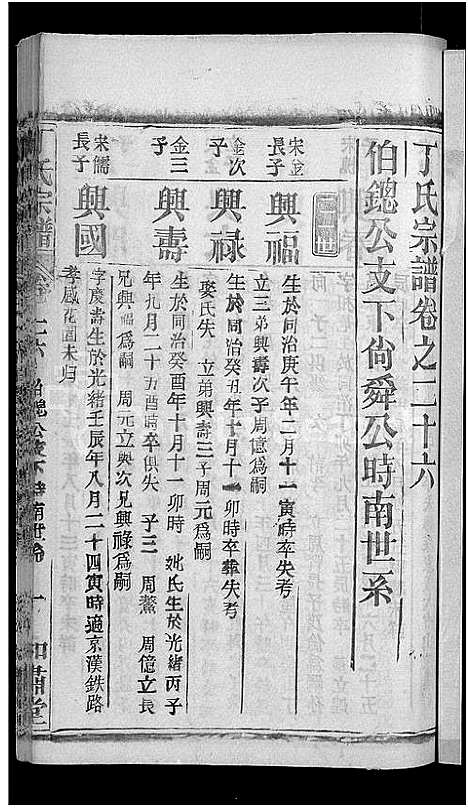 丁氏宗譜卷之二十六
伯鏓公支下尙舜公時南世系
世
宋金長子
興福
生於同治庚午年二月十一寅時卒失考
立三弟興壽次子周億爲嗣
金次子
興祿
生於同治癸丑年十月十一卯時卒葬失考
娶氏失 立弟興壽三子周元爲嗣
金三子
興壽
生於同治癸酉年十月十一卯時 妣氏生於光緒丙子
年九月二十五酉時卒俱失 子三 周鰲 周億立長
兄興福爲嗣 周元立次兄興祿爲嗣
宋儒長子
興國
字慶壽生於光緒壬辰年八月二十四寅時適京漢鉄路
孝感花園未归
氏宗譜
卷二六 伯鏓公支下時南世系 一